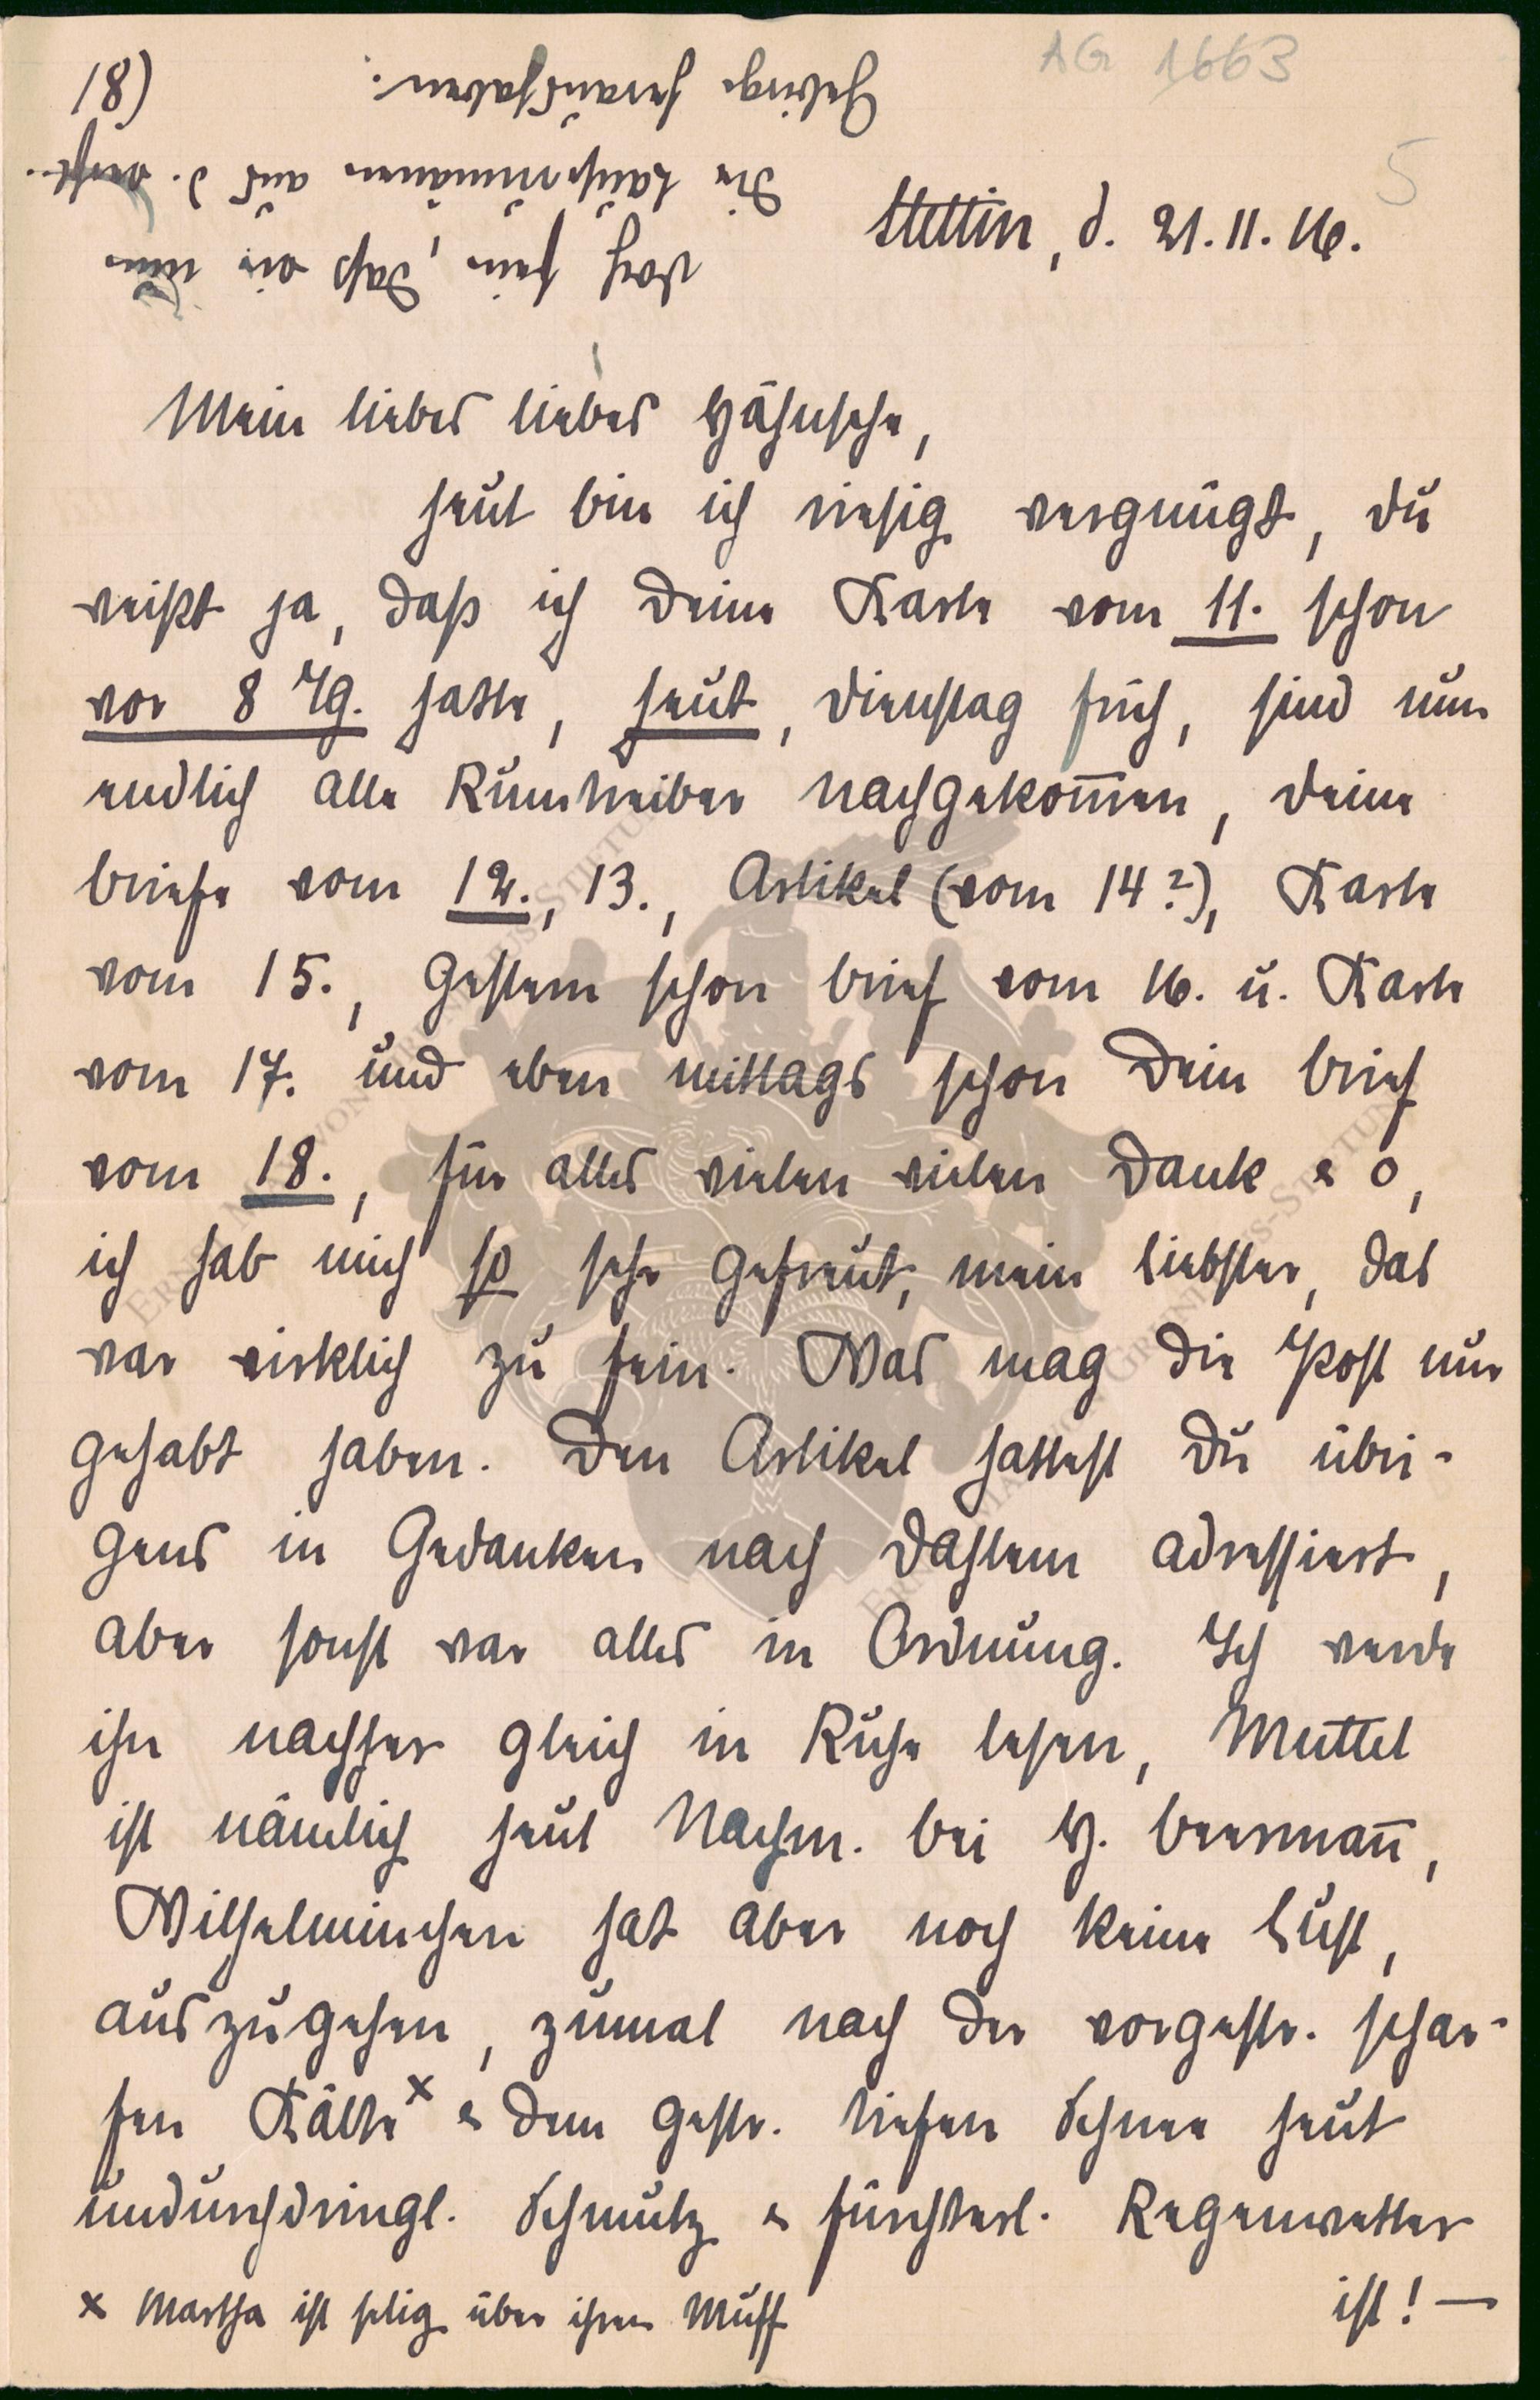 AG 1663
5
18)
doch fein, daß wir nun
die Laufrumänen aus d. westl.
Gebirge heraushaben.
Stettin, d. 21.11.16.
Mein liebes liebes Hähnsche,
heut bin ich riesig vergnügt, du
weißt ja, daß ich Deine Karte vom 11. schon
vor 8 Tg. hatte, heut, Dienstag früh, sind nun
endlich alle Rumtreiber nachgekom̄en, Deine
Briefe vom 12., 13., Artikel (vom 14?), Karte
vom 15., gestern schon Brief vom 16. u. Karte
vom 17. und eben mittags schon Dein Brief
vom 18., für alles vielen vielen Dank & o,
ich hab mich so sehr gefreut, mein Liebster, das
war wirklich zu fein. Was mag die Post nur
gehabt haben. Den Artikel hattest Du übri-
gens in Gedanken nach Dahlem adressiert,
aber sonst war alles in Ordnung. Ich werde
ihn nachher gleich in Ruhe lesen, Muttel
ist nämlich heut Nachm. bei H. Beerman̄,
Wilhelminchen hat aber noch keine Lust,
auszugehen, zumal nach der vorgestr. schar-
fen Kälte x & dem gestr. tiefen Schnee heut
undurchdringl. Schmutz & fürchterl. Regenwetter
ist! —
x Martha ist selig über ihren Muff